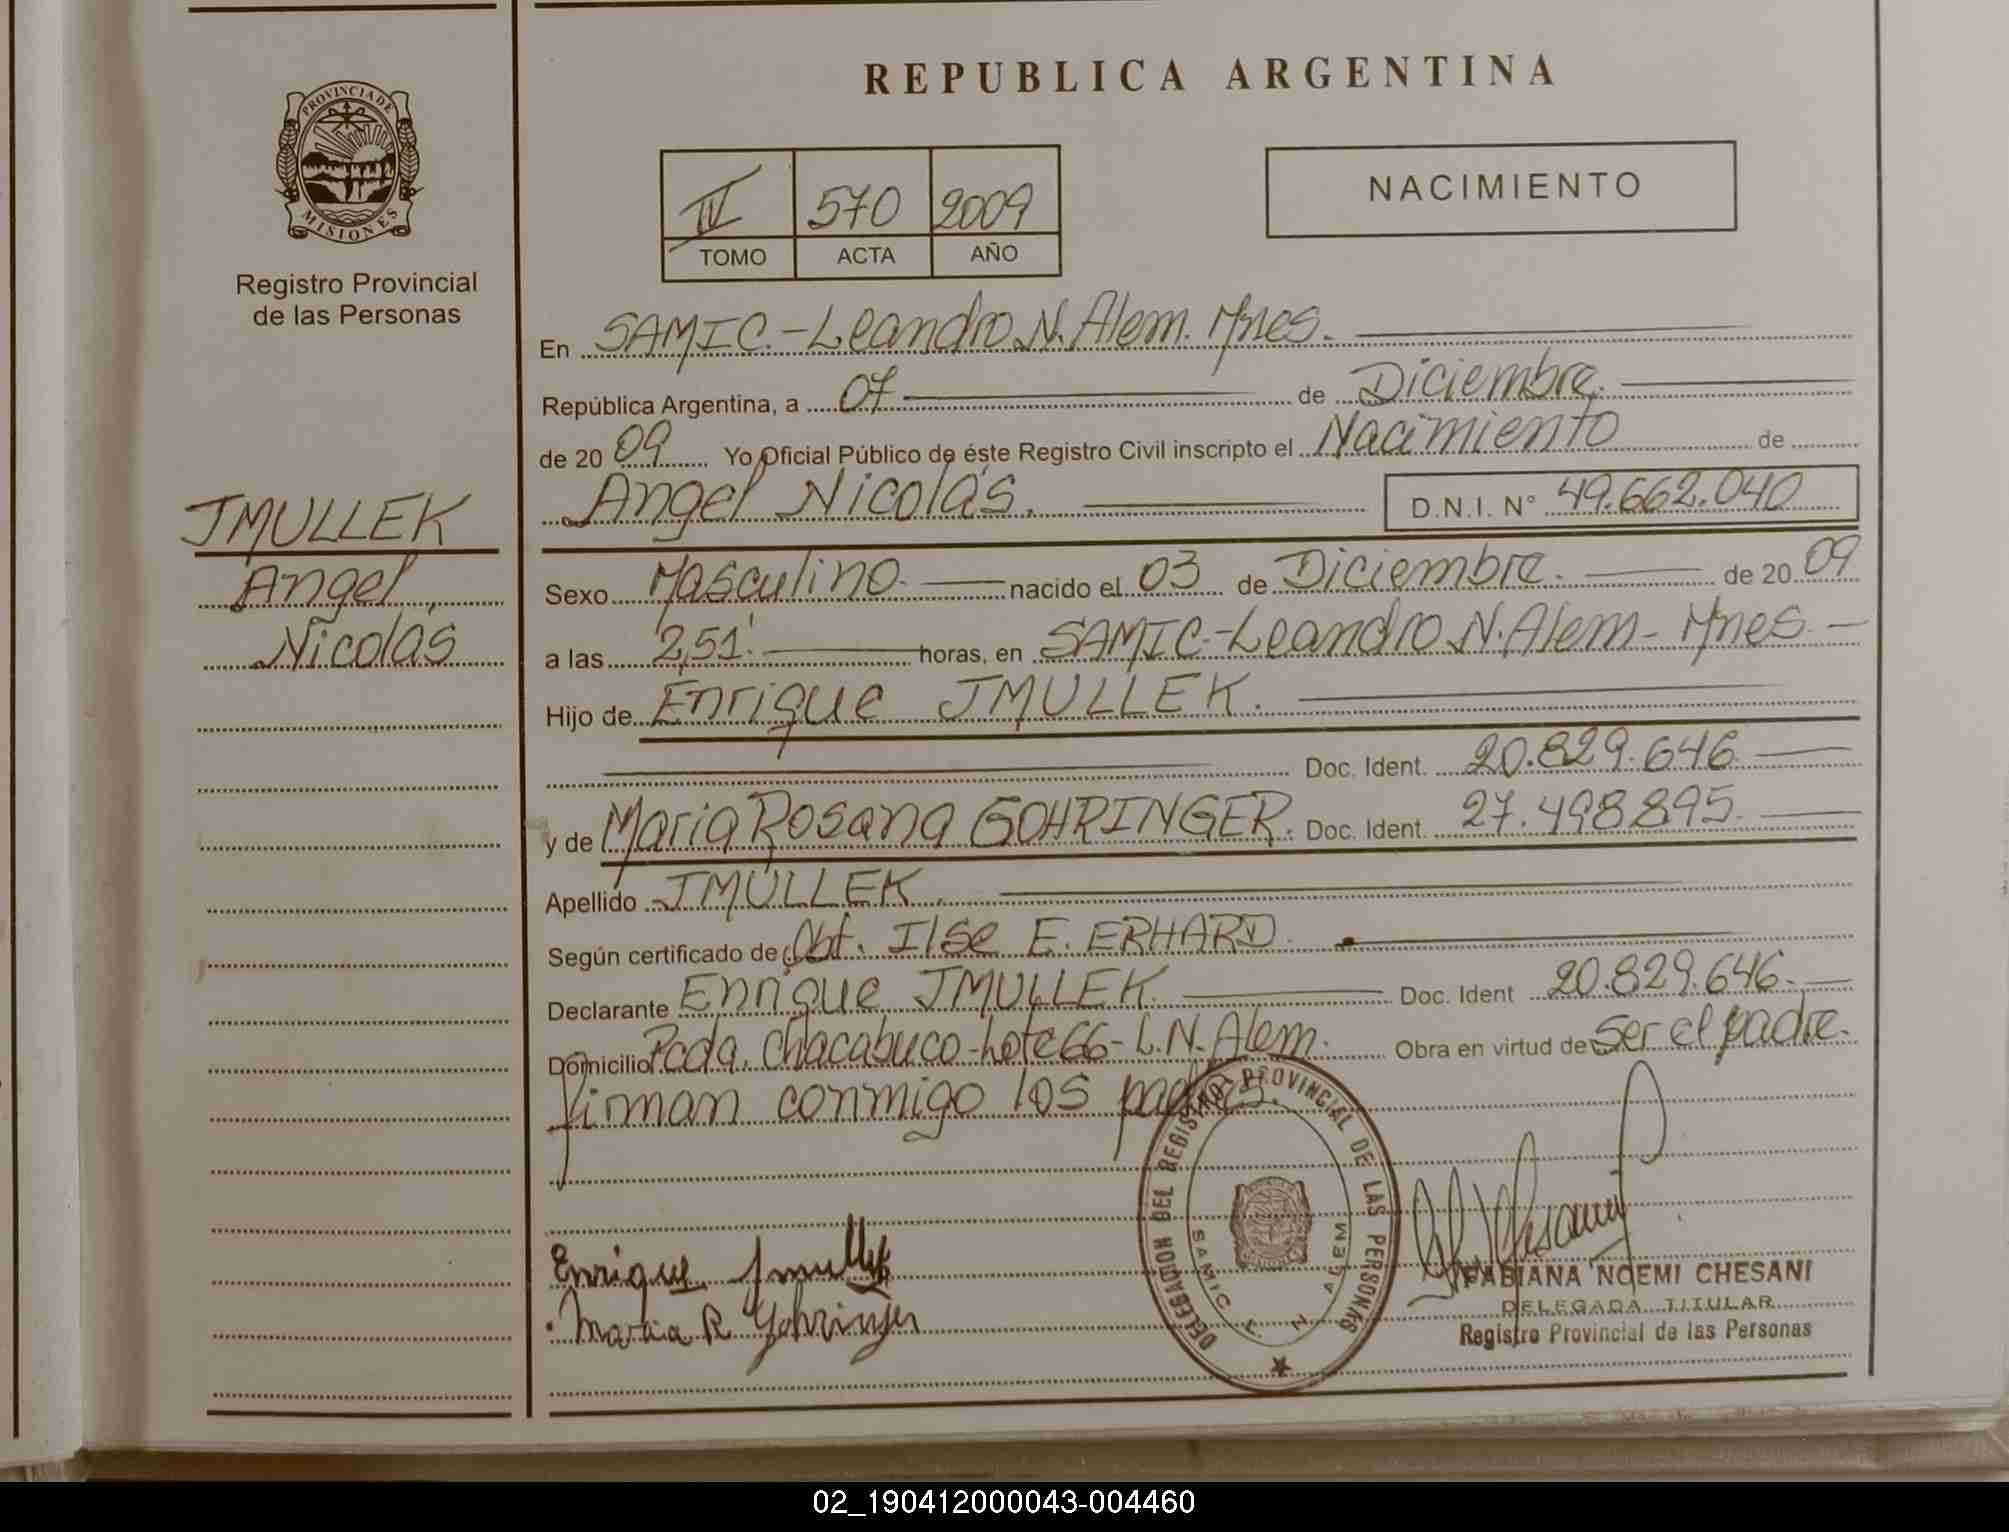 PROVINCIA DE
MISIONES
Registro Provincial
de las Personas
JMULLEK
Angel
Nicolás
REPUBLICA ARGENTINA
IV 570 2009
TOMO ACTA AÑO
NACIMIENTO
En SAMIC.-Leandro N. Alem. Mnes.
República Argentina, a 07 de Diciembre.
de 2009 Yo Oficial Público de éste Registro Civil inscripto el Nacimiento de
Angel Nicolás. D.N.I. N° 49.662.040
Sexo Masculino. nacido el 03 de Diciembre. de 2009
a las 2,51'. horas, en SAMIC.-Leandro N. Alem- Mnes.
Hijo de Enrique JMULLEK.
Doc. Ident. 20.829.646
y de Maria Rosana GOHRINGER. Doc. Ident. 27.498.895.
Apellido JMULLEK.
Según certificado de Obt. Ilse E. ERHARD.
Declarante Enrique JMULLEK. Doc. Ident 20.829.646.
Domicilio Pcda. Chacabuco-Lote 66- L.N. Alem. Obra en virtud de Ser el padre.
firman conmigo los padres.
Enrique Jmullek
Maria R Gohringer
DELEGACION DEL REGISTRO PROVINCIAL DE LAS PERSONAS
SAMIC L. N. ALEM
FABIANA NOEMI CHESANI
DELEGADA TITULAR
Registro Provincial de las Personas
02_190412000043-004460